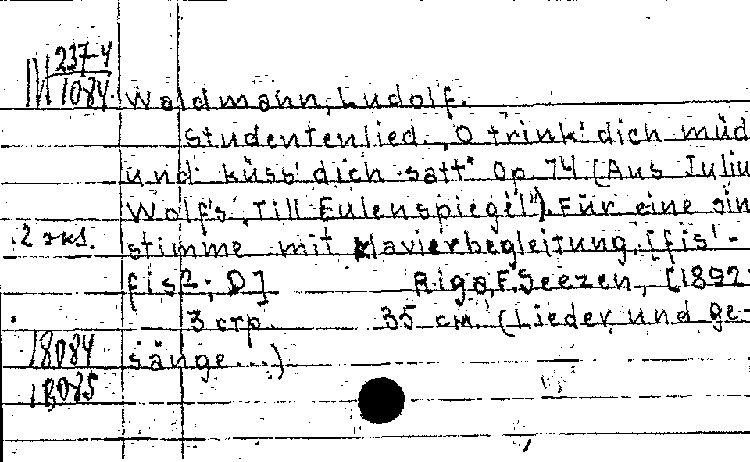 М 237-4
1084
Waldmann, Ludolf.
Studentenlied. „O trink' dich müd
und küss' dich satt" Op. 74 (Aus Juliu
Wolf's „Till Eulenspiegel"). Für eine sin
2 экз. stimme mit Klavierbegleitung. [fis¹-
fis²; D] Riga, F. Seezen, [1892
3 стр. 35 см. (Lieder und ge-
18084 sänge...)
18085